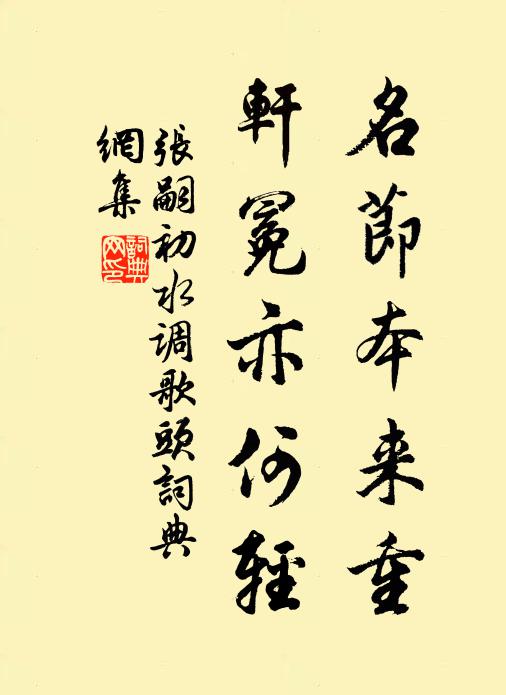 名節本来重
軒冕亦何輕
張嗣初水调歌頭詞典
網集
詞典
网印